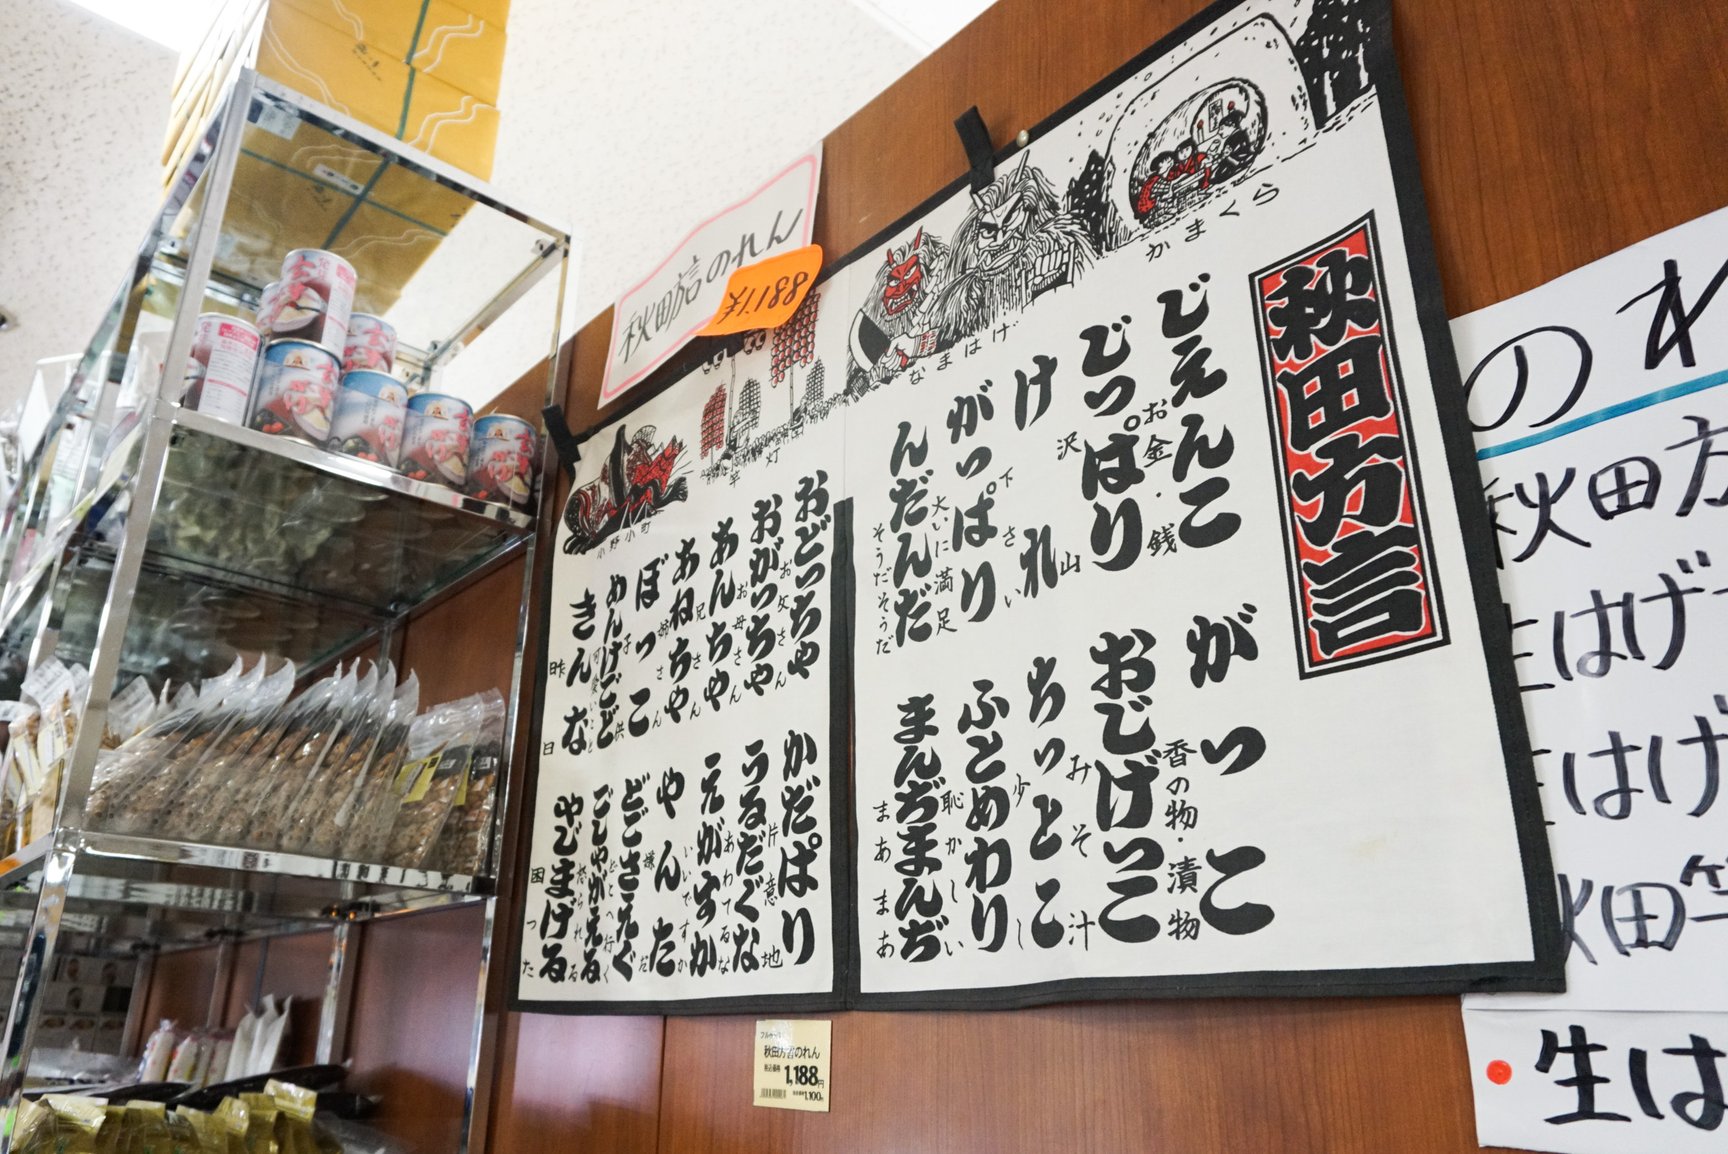 秋田方言のれん
¥1,188
かまくら
なまはげ
竿灯
小野小町
秋田方言
じぇんこ
お金・銭
じっぱり
沢山
け
下さい
がっぱり
大いに満足
んだんだ
そうだそうだ
がっこ
香の物・漬物
おじげっこ
みそ汁
ちっとこ
少し
ふとめわり
恥かしい
まんぢまんぢ
まあまあ
おどっちゃ
お父さん
おがっちゃ
お母さん
あんちゃ
兄さん
あねちゃ
姉さん
ぼっこ
めんけごど
きんな
昨日
かだぱり
片意地
うるだぐな
あわてるな
えがすか
いいですか
やんた
嫌だ
どごさえぐ
どこへ行く
ごしゃがえる
怒られる
やじまげる
困った
秋田方言のれん
税込価格 1,188円
1,100円
のれ
秋田方
生はげ
生はげ
秋田竿
・生は